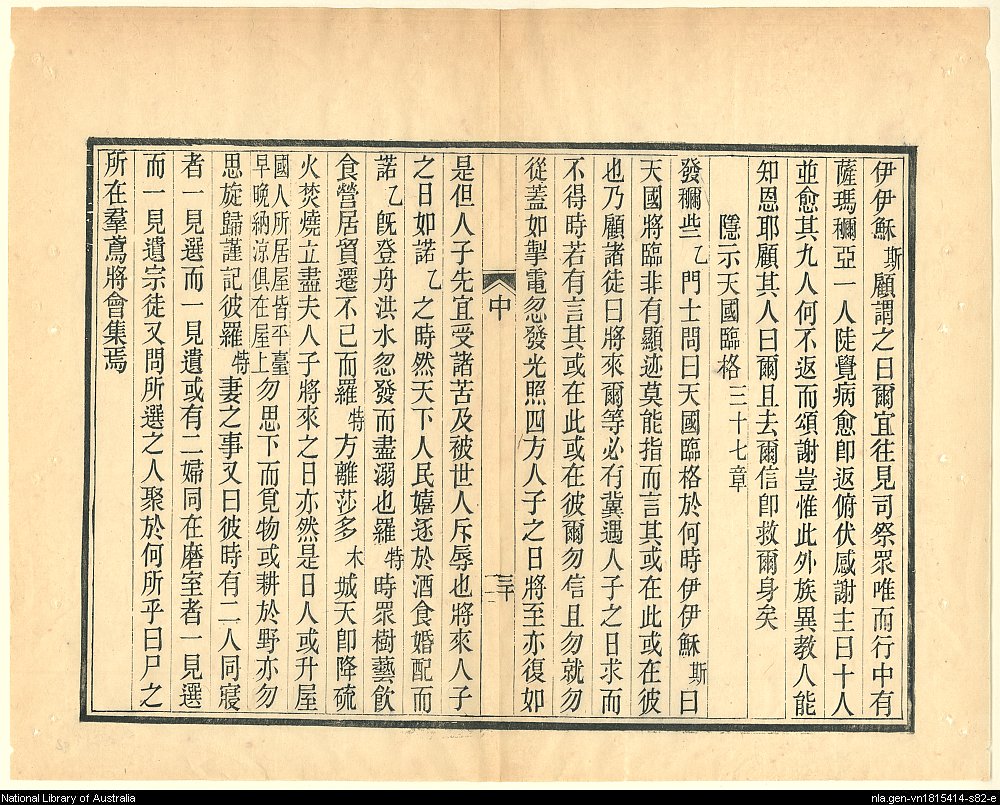 伊伊穌斯顧謂之曰爾宜往見司祭眾唯而行中有
薩瑪穪亞一人陡覺病愈卽返俯伏感謝主曰十人
並愈其九人何不返而頌謝豈惟此外族異教人能
知恩耶顧其人曰爾且去爾信卽救爾身矣
隱示天國臨格三十七章
發穪些乙門士問曰天國臨格於何時伊伊穌斯曰
天國將臨非有顯迹莫能指而言其或在此或在彼
也乃顧諸徒曰將來爾等必有冀遇人子之日求而
不得時若有言其或在此或在彼爾勿信且勿就勿
從蓋如掣電忽發光照四方人子之日將至亦復如
中
三十
是但人子先宜受諸苦及被世人斥辱也將來人子
之日如諾乙之時然天下人民嬉逐於酒食婚配而
諾乙旣登舟洪水忽發而盡溺也羅特時眾樹藝飲
食營居貿遷不已而羅特方離莎多木城天卽降硫
火焚燒立盡夫人子將來之日亦然是日人或升屋
國人所居屋皆平臺
早晚納涼俱在屋上
勿思下而覓物或耕於野亦勿
思旋歸謹記彼羅特妻之事又曰彼時有二人同寢
者一見選而一見遺或有二婦同在磨室者一見選
而一見遺宗徒又問所選之人聚於何所乎曰尸之
所在羣鳶將會集焉
National Library of Australia
nla.gen-vn1815414-s82-e